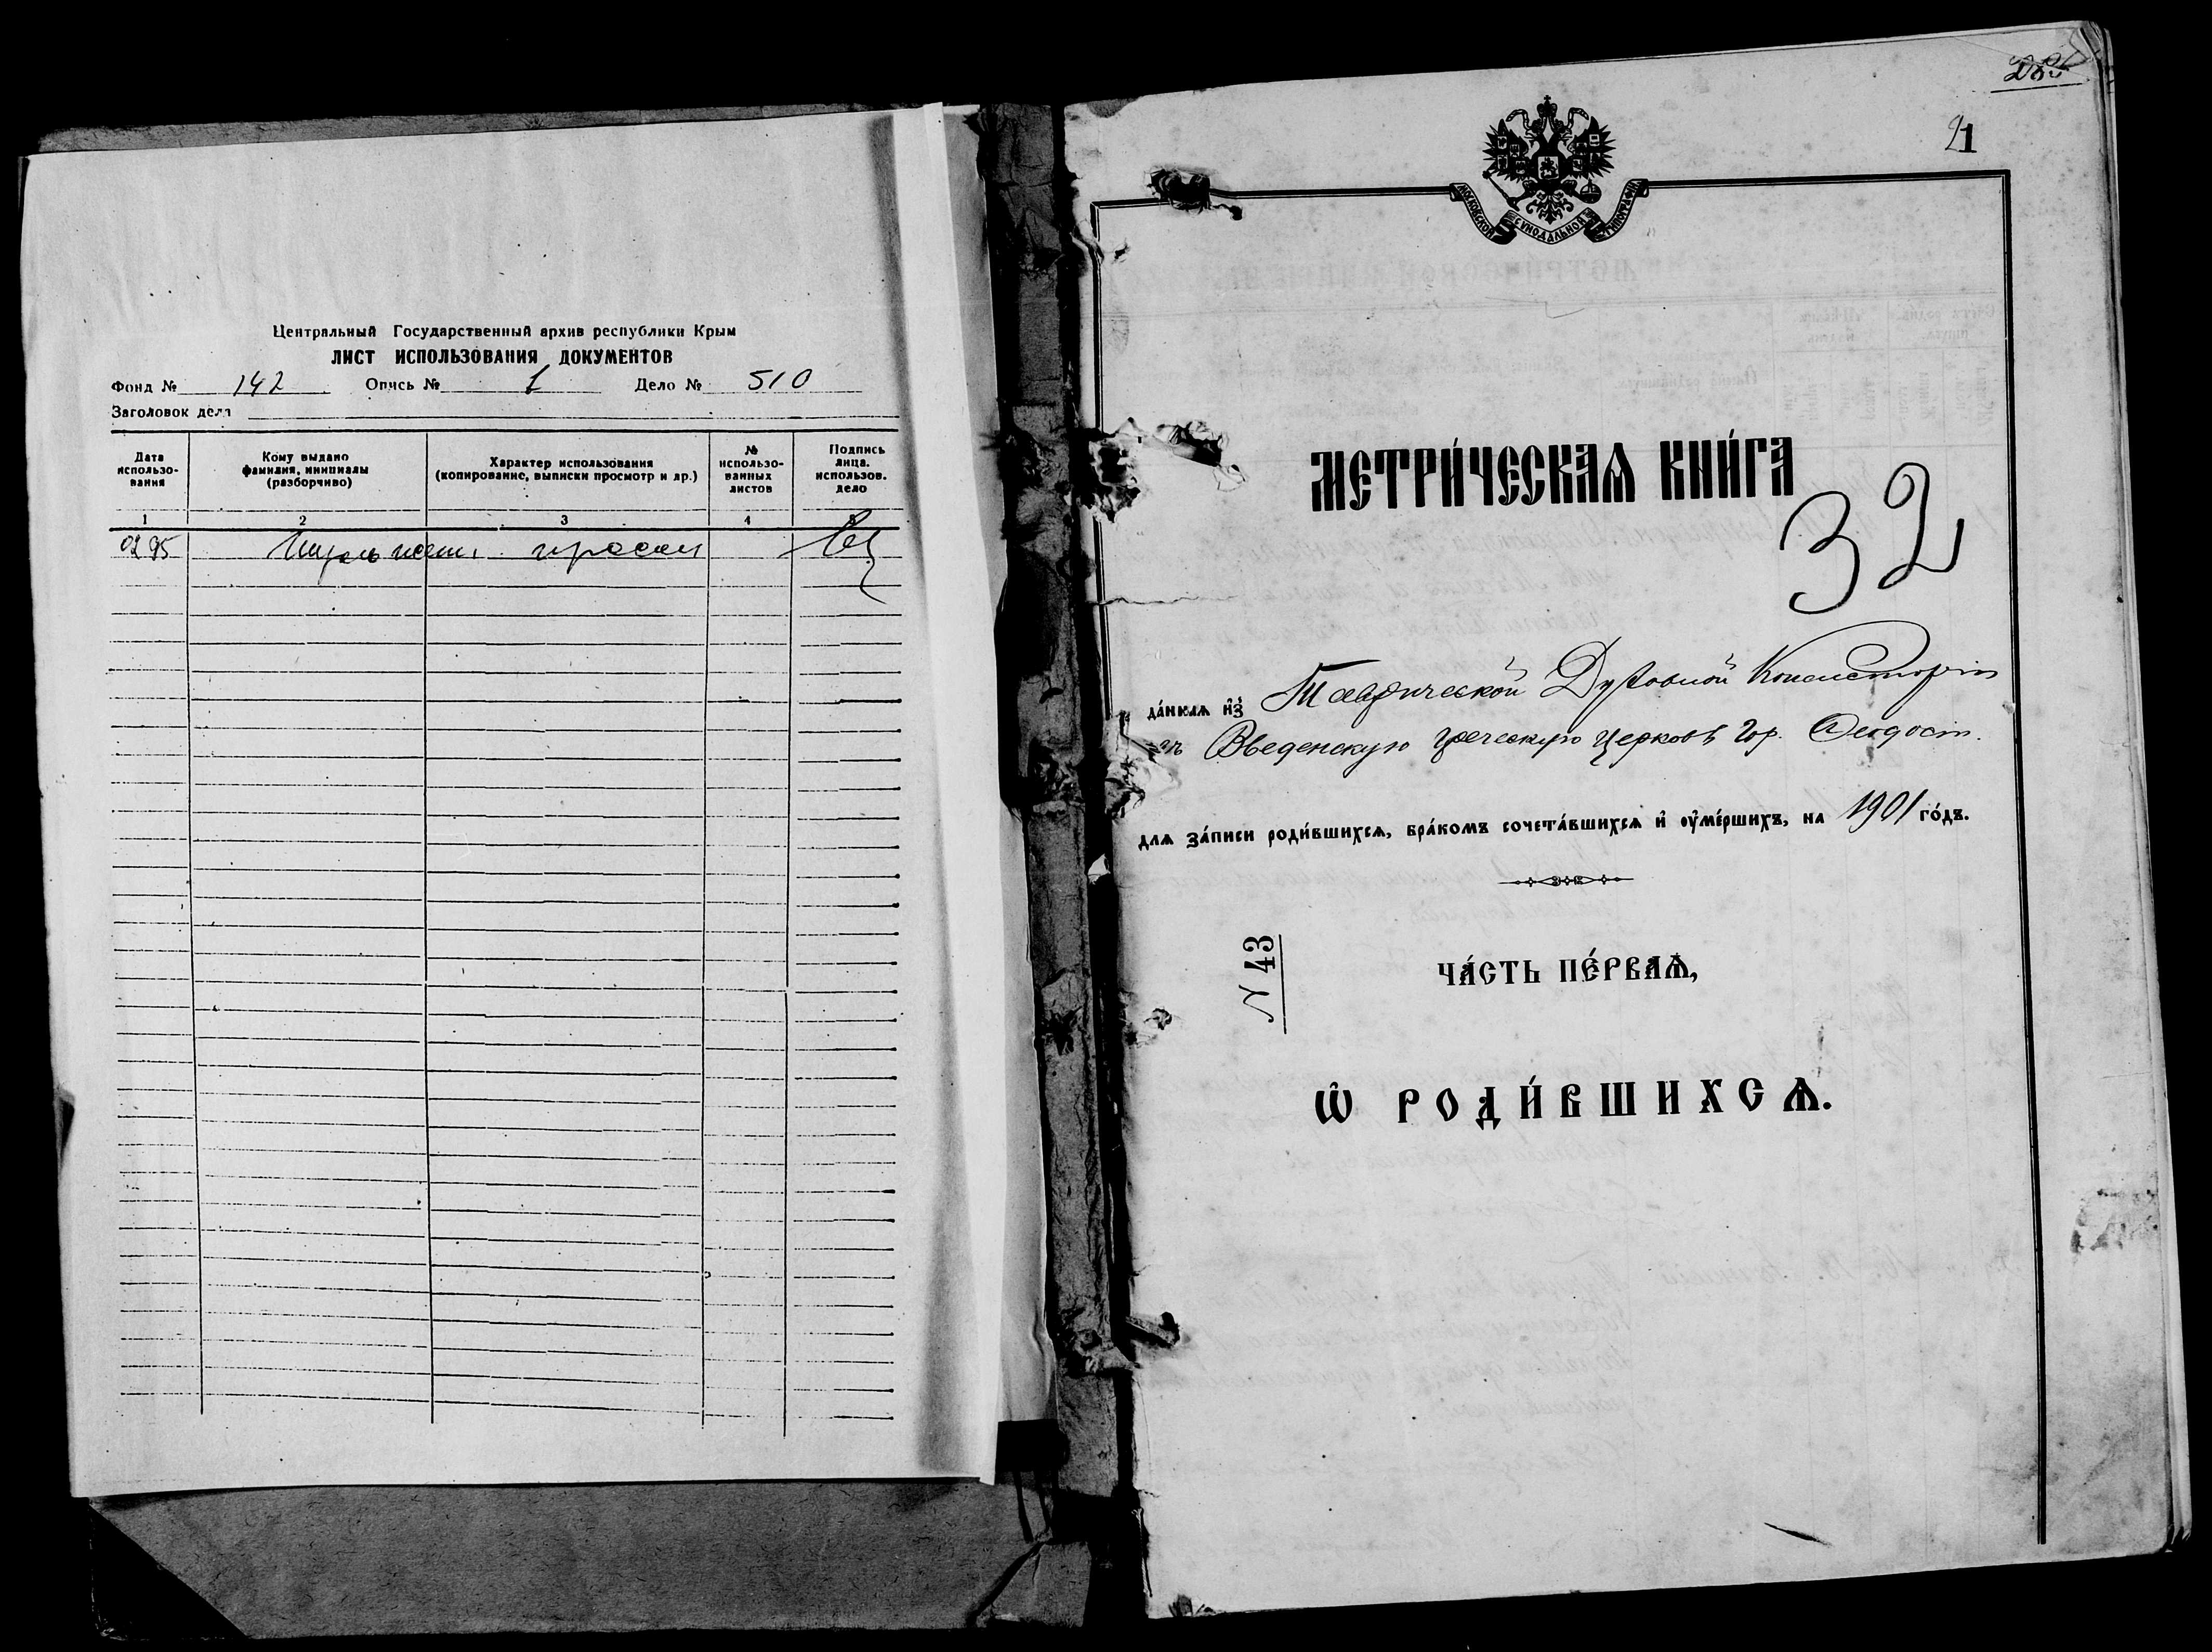 Центральный Государственный архив республики Крым
ЛИСТ ИСПОЛЬЗОВАНИЯ ДОКУМЕНТОВ
Фонд № 142 Опись № 1 Дело № 510
Заголовок дела
Дата использо-вания
Кому выдано фамилия, инициалы (разборчиво)
Характер использования (копирование, выписки просмотр и др.)
№ использо-ванных листов
Подпись лица. использов. дело
1 2 3 4 5
02 95
21
МОСКОВСКОЙ СѴНОДАЛЬНОЙ ТИПОГРАФІИ
МЕТРИ́ЧЕСКАѦ КНИ́ГА
32
да́ннаѧ и҆з̾ Таврической Духовной Консисторіи
въ Введенскую греческую церковь гор. Ѳеодосіи.
длѧ за́писи роди́вшихсѧ, бра́комъ сочета́вшихсѧ и҆ оу҆ме́ршихъ, на 1901 го́дъ.
N 43
ЧА́СТЬ ПЕ́РВАѦ,
Ѽ РОДИ́ВШИХСѦ.